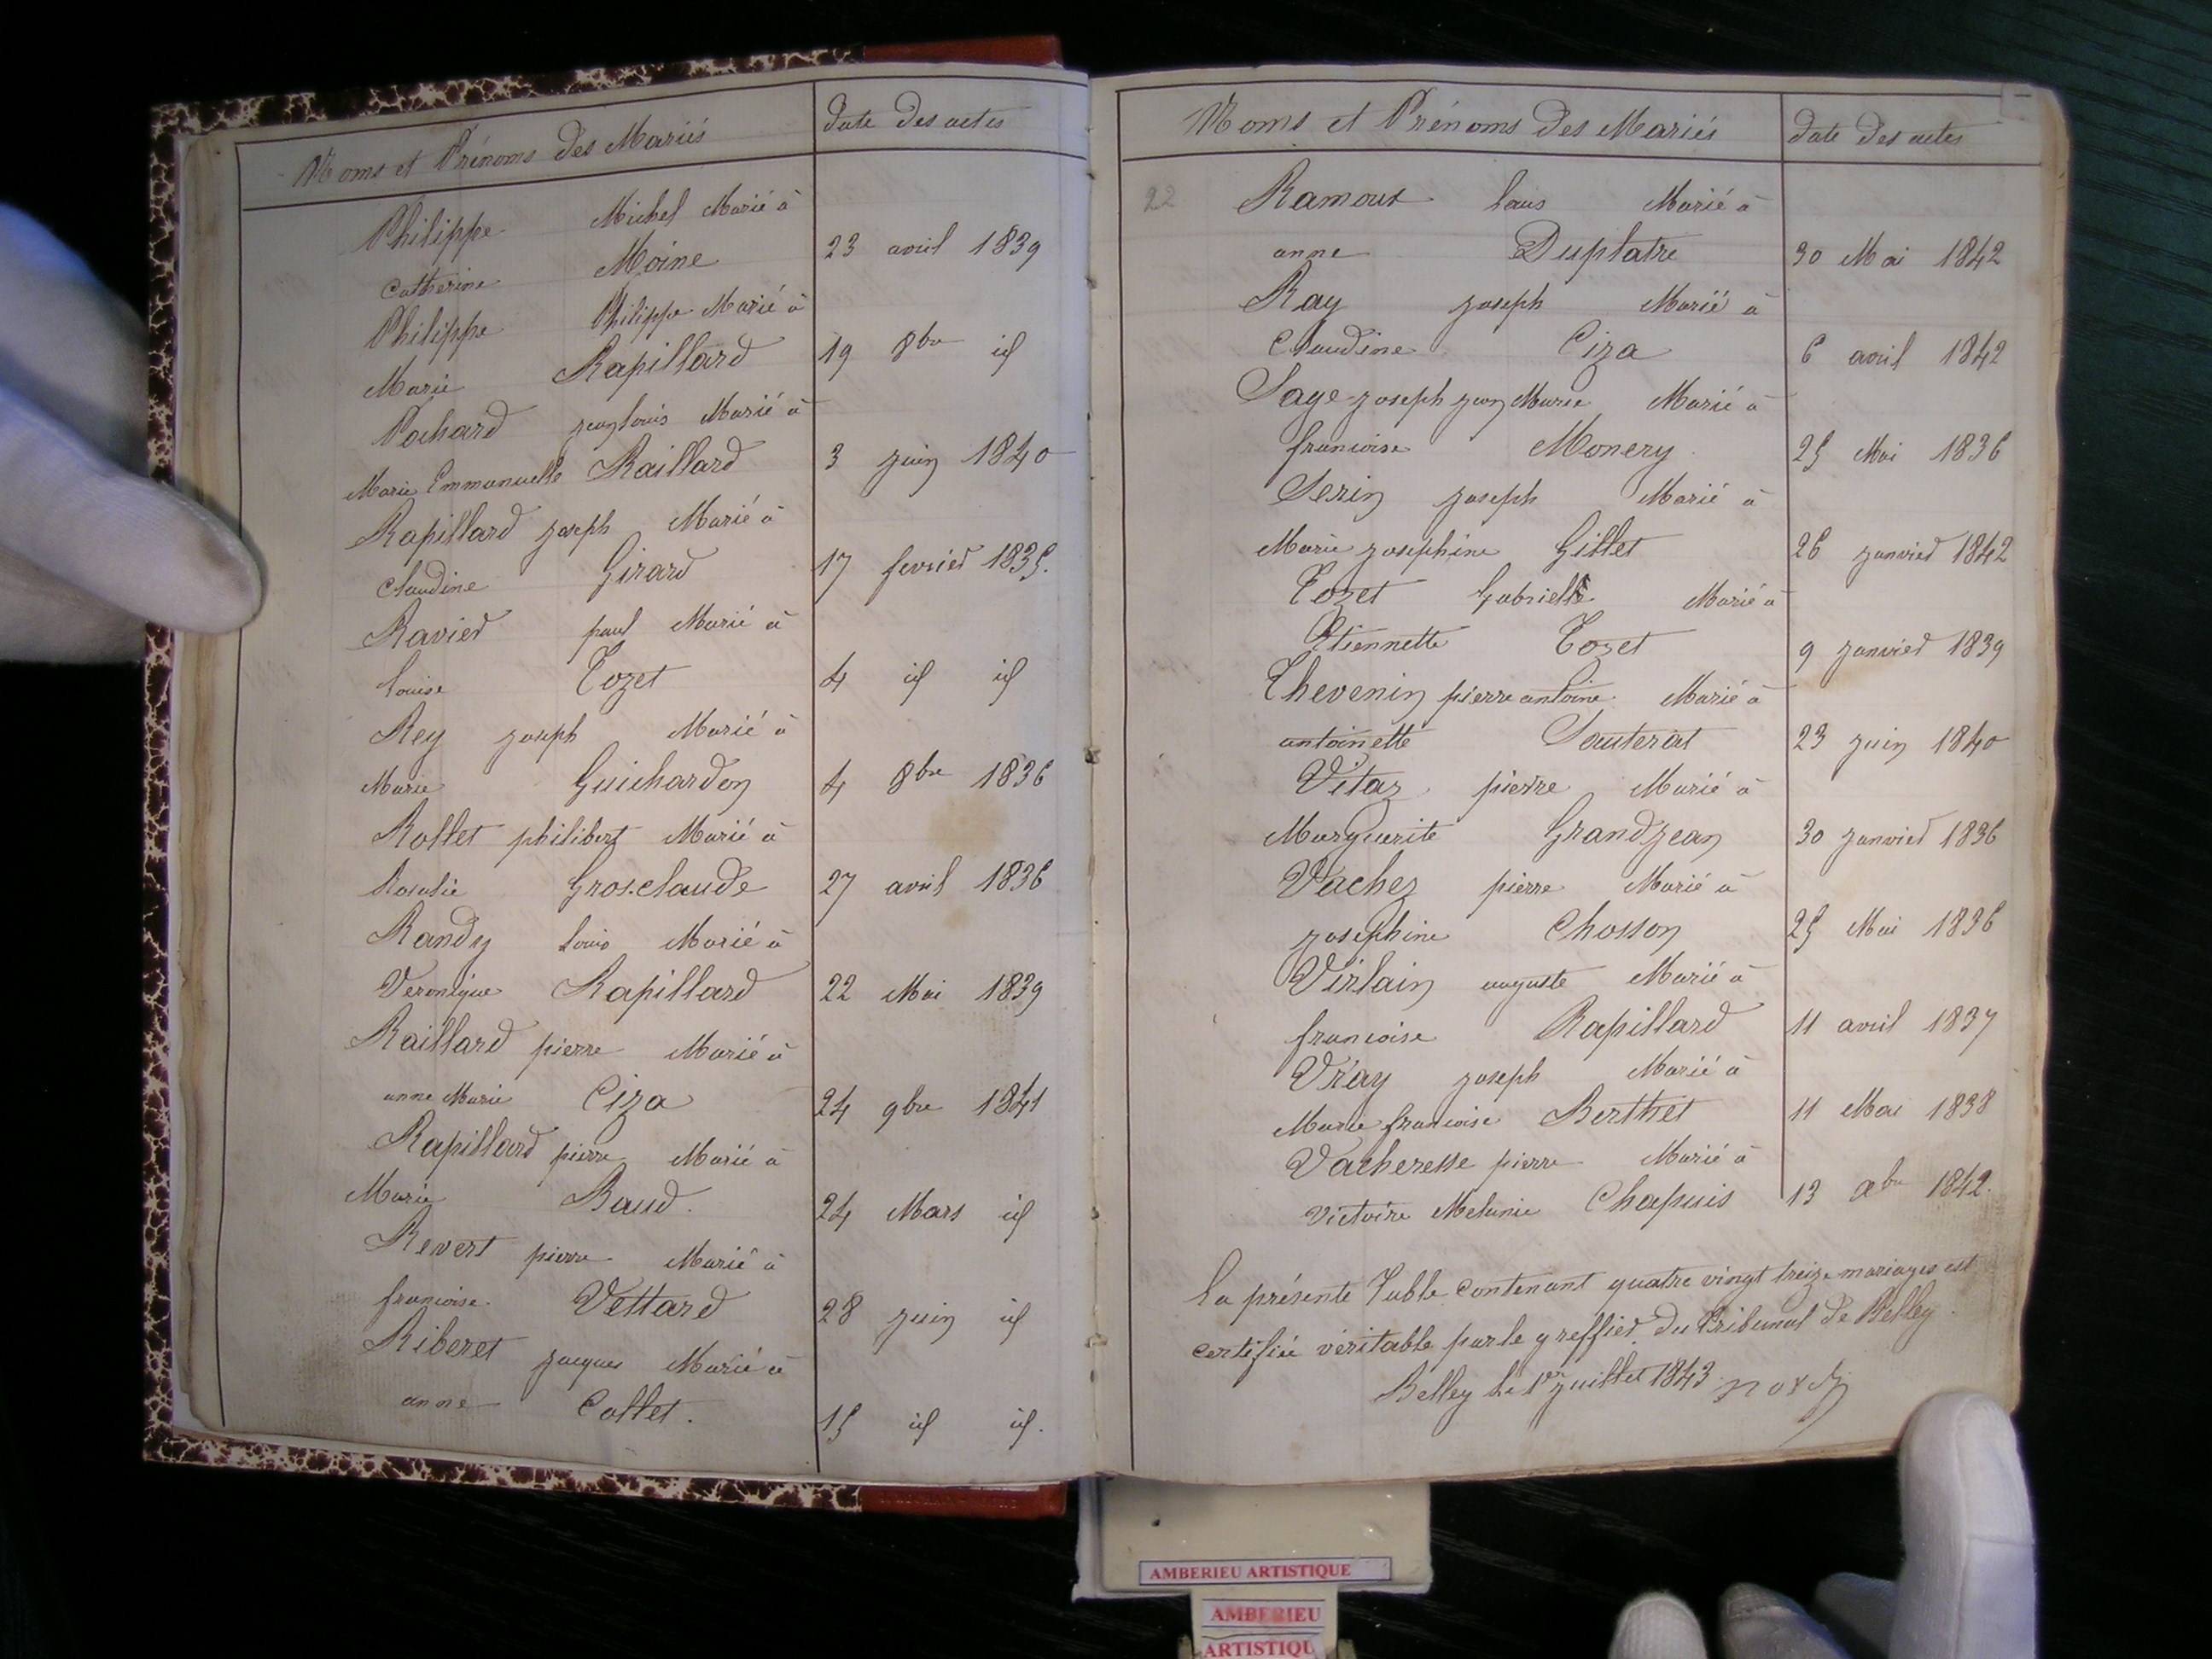 Noms et Prénoms des Mariés date des actes
Philippe Michel Marié à
Catherine Moine 23 avril 1839
Philippe Philippe Marié à
Marie Rapillard 19 8bre id
Pochard jean louis Marié à
Marie Emmanuelle Raillard 3 juin 1840
Rapillard joseph Marié à
Claudine Girard 17 fevrier 1835.
Ravier paul Marié à
louise Tozet 4 id id
Rey joseph Marié à
Marie Guichardon 4 8bre 1836
Rollet philibert Marié à
Rosalie Gros.claude 27 avril 1836
Randy louis Marié à
Veronique Rapillard 22 Mai 1839
Raillard pierre Marié à
anne Marie Ciza 24 9bre 1841
Rapillard pierre Marié à
Marie Baud. 24 Mars id
Revert pierre Marié à
francoise. Vettard 28 juin id
Riberet jacques Marié à
anne Collet. 15 id id.
Noms et Prénoms des Mariés date des actes
22 Ramoux louis Marié à
anne Duplatre 30 Mai 1842
Ray joseph Marié à
Claudine Ciza 6 avril 1842
Sage joseph jean Marie Marié à
francoise Monery 25 Mai 1836
Serin joseph Marié à
Marie josephine Gillet 26 janvier 1842
Tozet Gabrielle Marié à
Etiennette Tozet 9 janvier 1839
Thevenin pierre antoine Marié à
antoinette Sauterat 23 juin 1840
Vitaz pierre Marié à
Marguerite Grandjean 30 janvier 1836
Vachez pierre Marié à
josephine Chosson 25 Mai 1836
Virlain auguste Marié à
francoise Rapillard 11 avril 1837
Vray joseph Marié à
Marie francoise Berthet 11 Mai 1838
Vacheresse pierre Marié à
Victoire Melanie Chapuis 13 Xbre 1842.
La présente Table contenant quatre vingt treize mariages est
certifiée véritable par le greffier du Tribunal de Belley
Belley le 1er juillet 1843
AMBERIEU ARTISTIQUE
AMBERIEU
ARTISTIQU